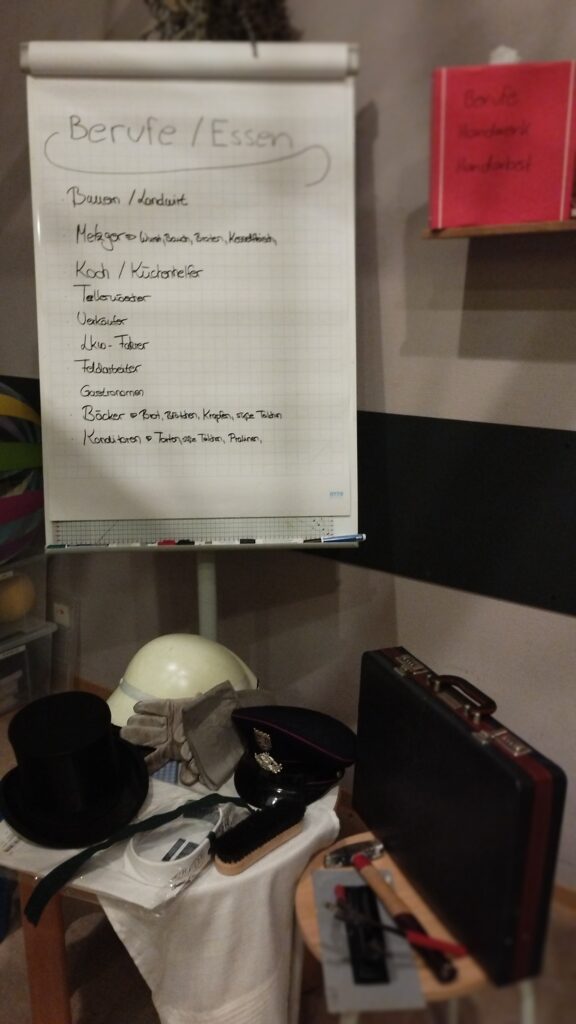 Berufe / Essen
Bauern / Landwirt
Metzger ⇒ Wurst, Bauch, Braten, Kesselfleisch,
Koch / Küchenhelfer
Tellerwäscher
Verkäufer
Lkw-Fahrer
Feldarbeiter
Gastronomen
Bäcker ⇒ Brot, Brötchen, Krapfen, süße Teilchen
Konditoren ⇒ Torten, süße Teilchen, Pralinen,
Berufe
Handwerk
Handarbeit